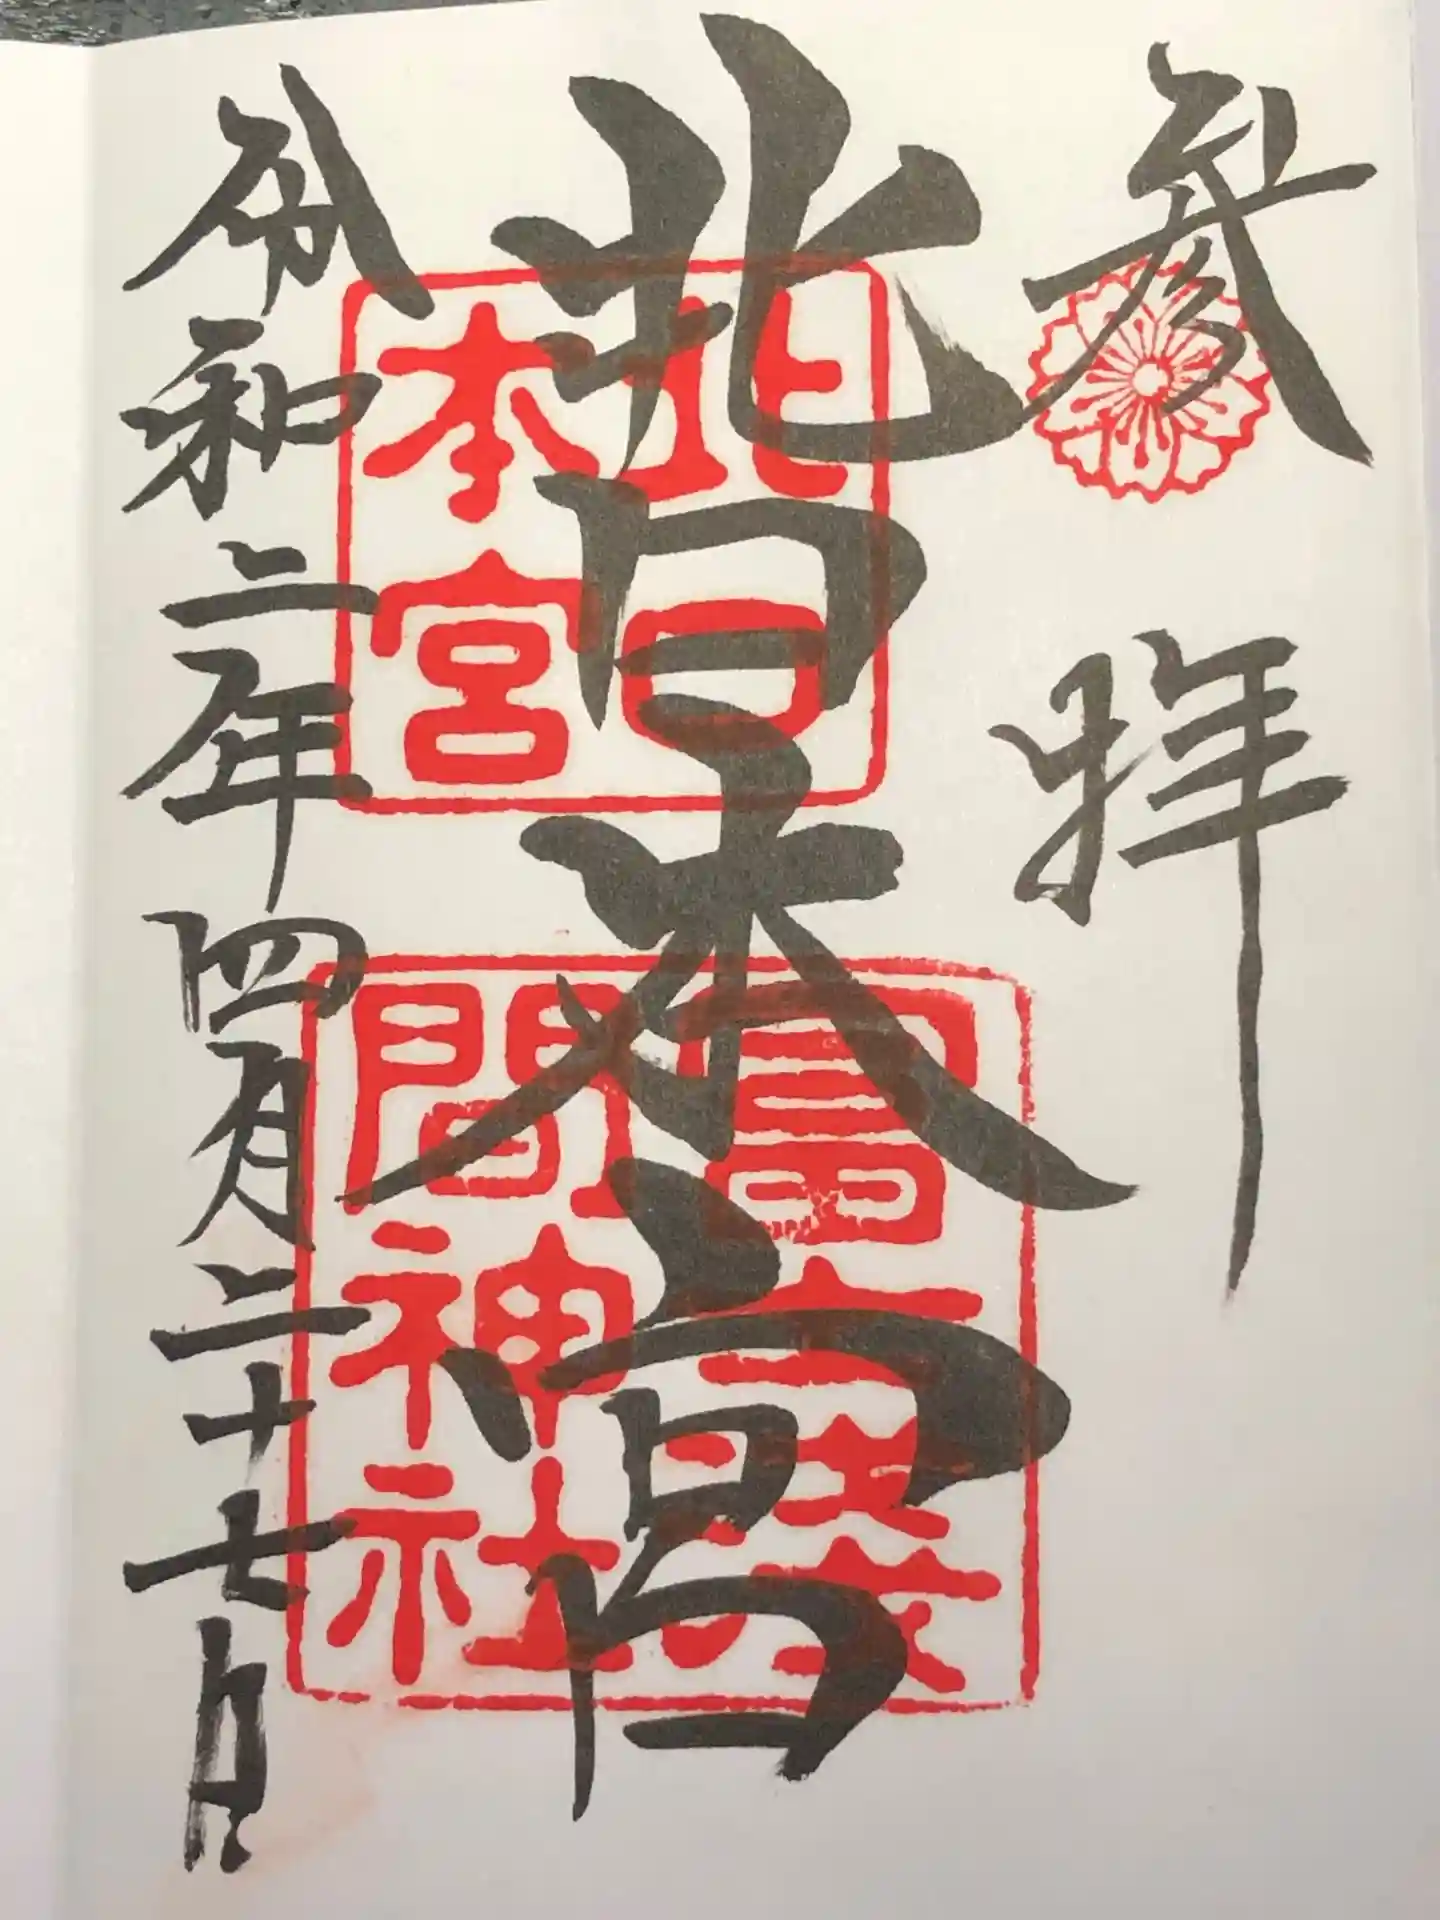 参拝
北口本宮
令和二年四月二十七日
北口
本宮
冨士淺
間神社